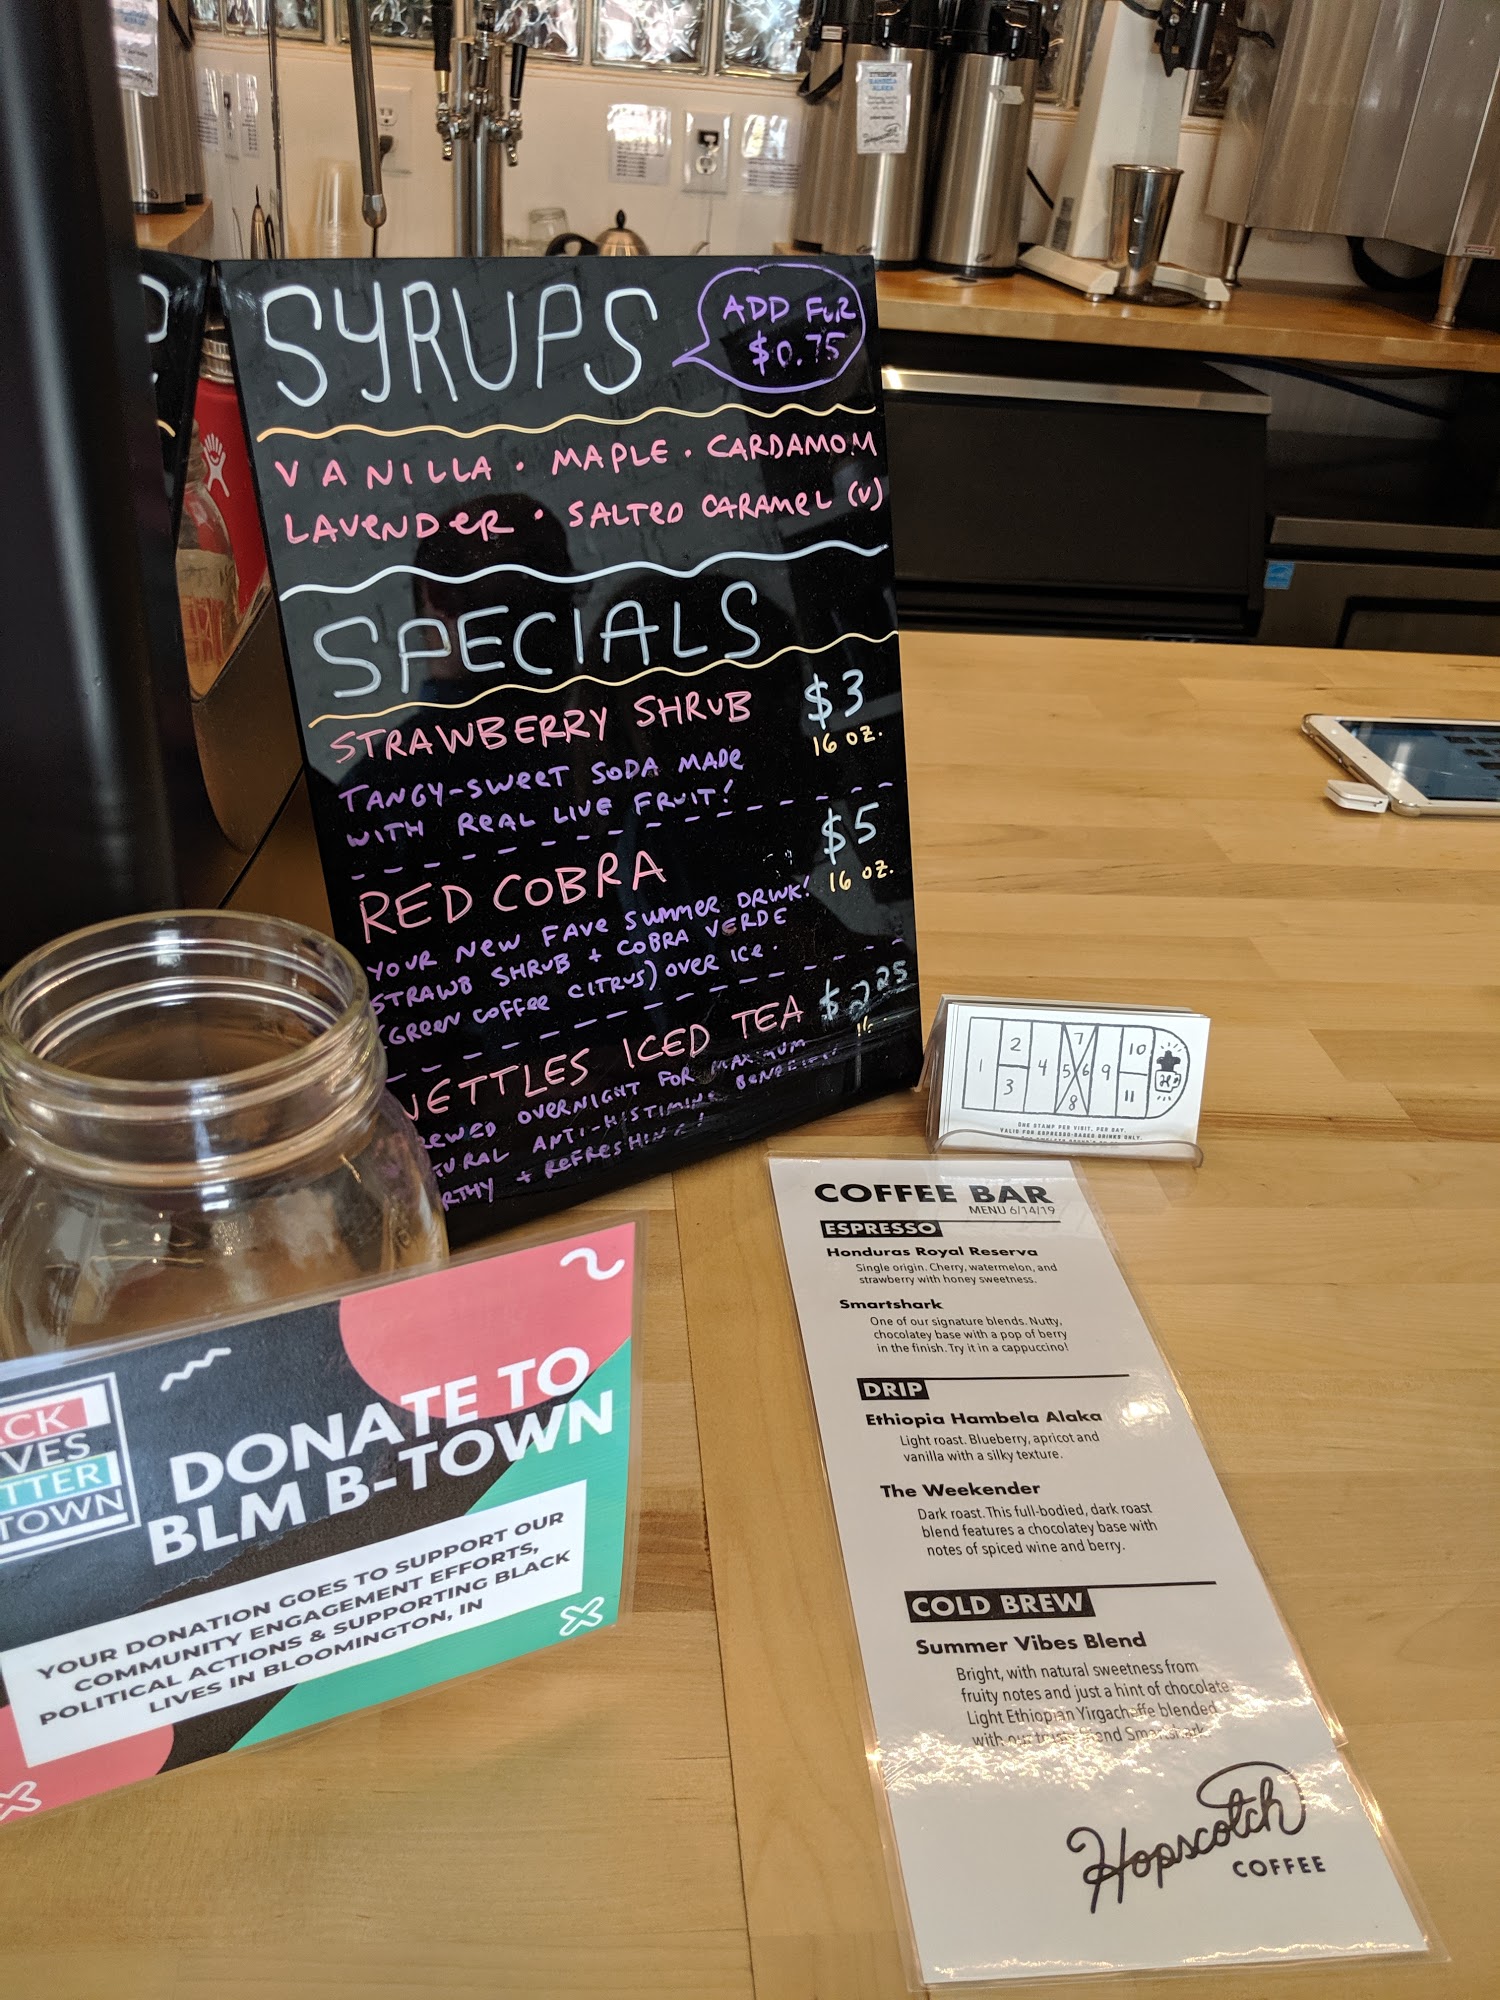 SYRUPS
ADD FOR
$0.75
VANILLA · MAPLE · CARDAMOM
LAVENDER · SALTED CARAMEL (V)
SPECIALS
STRAWBERRY SHRUB $3
16 OZ.
TANGY-SWEET SODA MADE
WITH REAL LIVE FRUIT!
RED COBRA $5
16 OZ.
YOUR NEW FAVE SUMMER DRINK!
STRAWB SHRUB + COBRA VERDE
(GREEN COFFEE CITRUS) OVER ICE.
NETTLES ICED TEA $2.25
OVERNIGHT FOR MAXIMUM
ANTI-HISTIMINE
+ REFRESHING!
1 2 3 4 5 6 7 8 9 10 11
ONE STAMP PER VISIT, PER DAY.
VALID FOR ESPRESSO-BASED DRINKS ONLY.
COFFEE BAR
MENU 6/14/19
ESPRESSO
Honduras Royal Reserva
Single origin. Cherry, watermelon, and
strawberry with honey sweetness.
Smartshark
One of our signature blends. Nutty,
chocolatey base with a pop of berry
in the finish. Try it in a cappuccino!
DRIP
Ethiopia Hambela Alaka
Light roast. Blueberry, apricot and
vanilla with a silky texture.
The Weekender
Dark roast. This full-bodied, dark roast
blend features a chocolatey base with
notes of spiced wine and berry.
COLD BREW
Summer Vibes Blend
Bright, with natural sweetness from
fruity notes and just a hint of chocolate.
Light Ethiopian Yirgacheffe blended
with our blend Smartshark.
Hopscotch
COFFEE
ACK
VES
TTER
TOWN
DONATE TO
BLM B-TOWN
YOUR DONATION GOES TO SUPPORT OUR
COMMUNITY ENGAGEMENT EFFORTS,
POLITICAL ACTIONS & SUPPORTING BLACK
LIVES IN BLOOMINGTON, IN